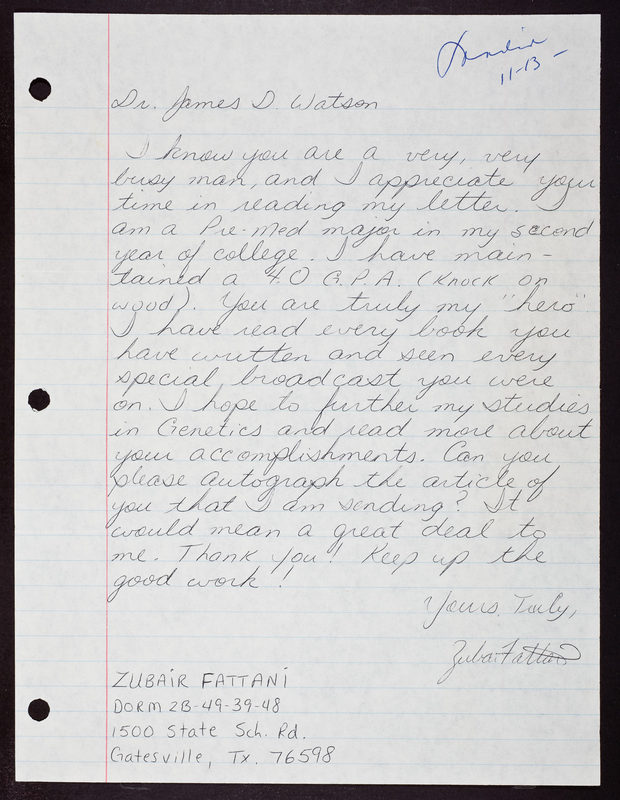 11-13-
Dr. James D. Watson
I know you are a very, very
busy man, and I appreciate your
time in reading my letter. I
am a Pre-Med major in my second
year of college. I have main-
tained a 4.0 G.P.A. (Knock on
wood). You are truly my "hero".
I have read every book you
have written and seen every
special broadcast you were
on. I hope to further my studies
in Genetics and read more about
your accomplishments. Can you
please autograph the article of
you that I am sending? It
would mean a great deal to
me. Thank you! Keep up the
good work!
Yours Truly,
Zubair Fattani
ZUBAIR FATTANI
DORM 2B-49-39-48
1500 State Sch. Rd.
Gatesville, Tx. 76598